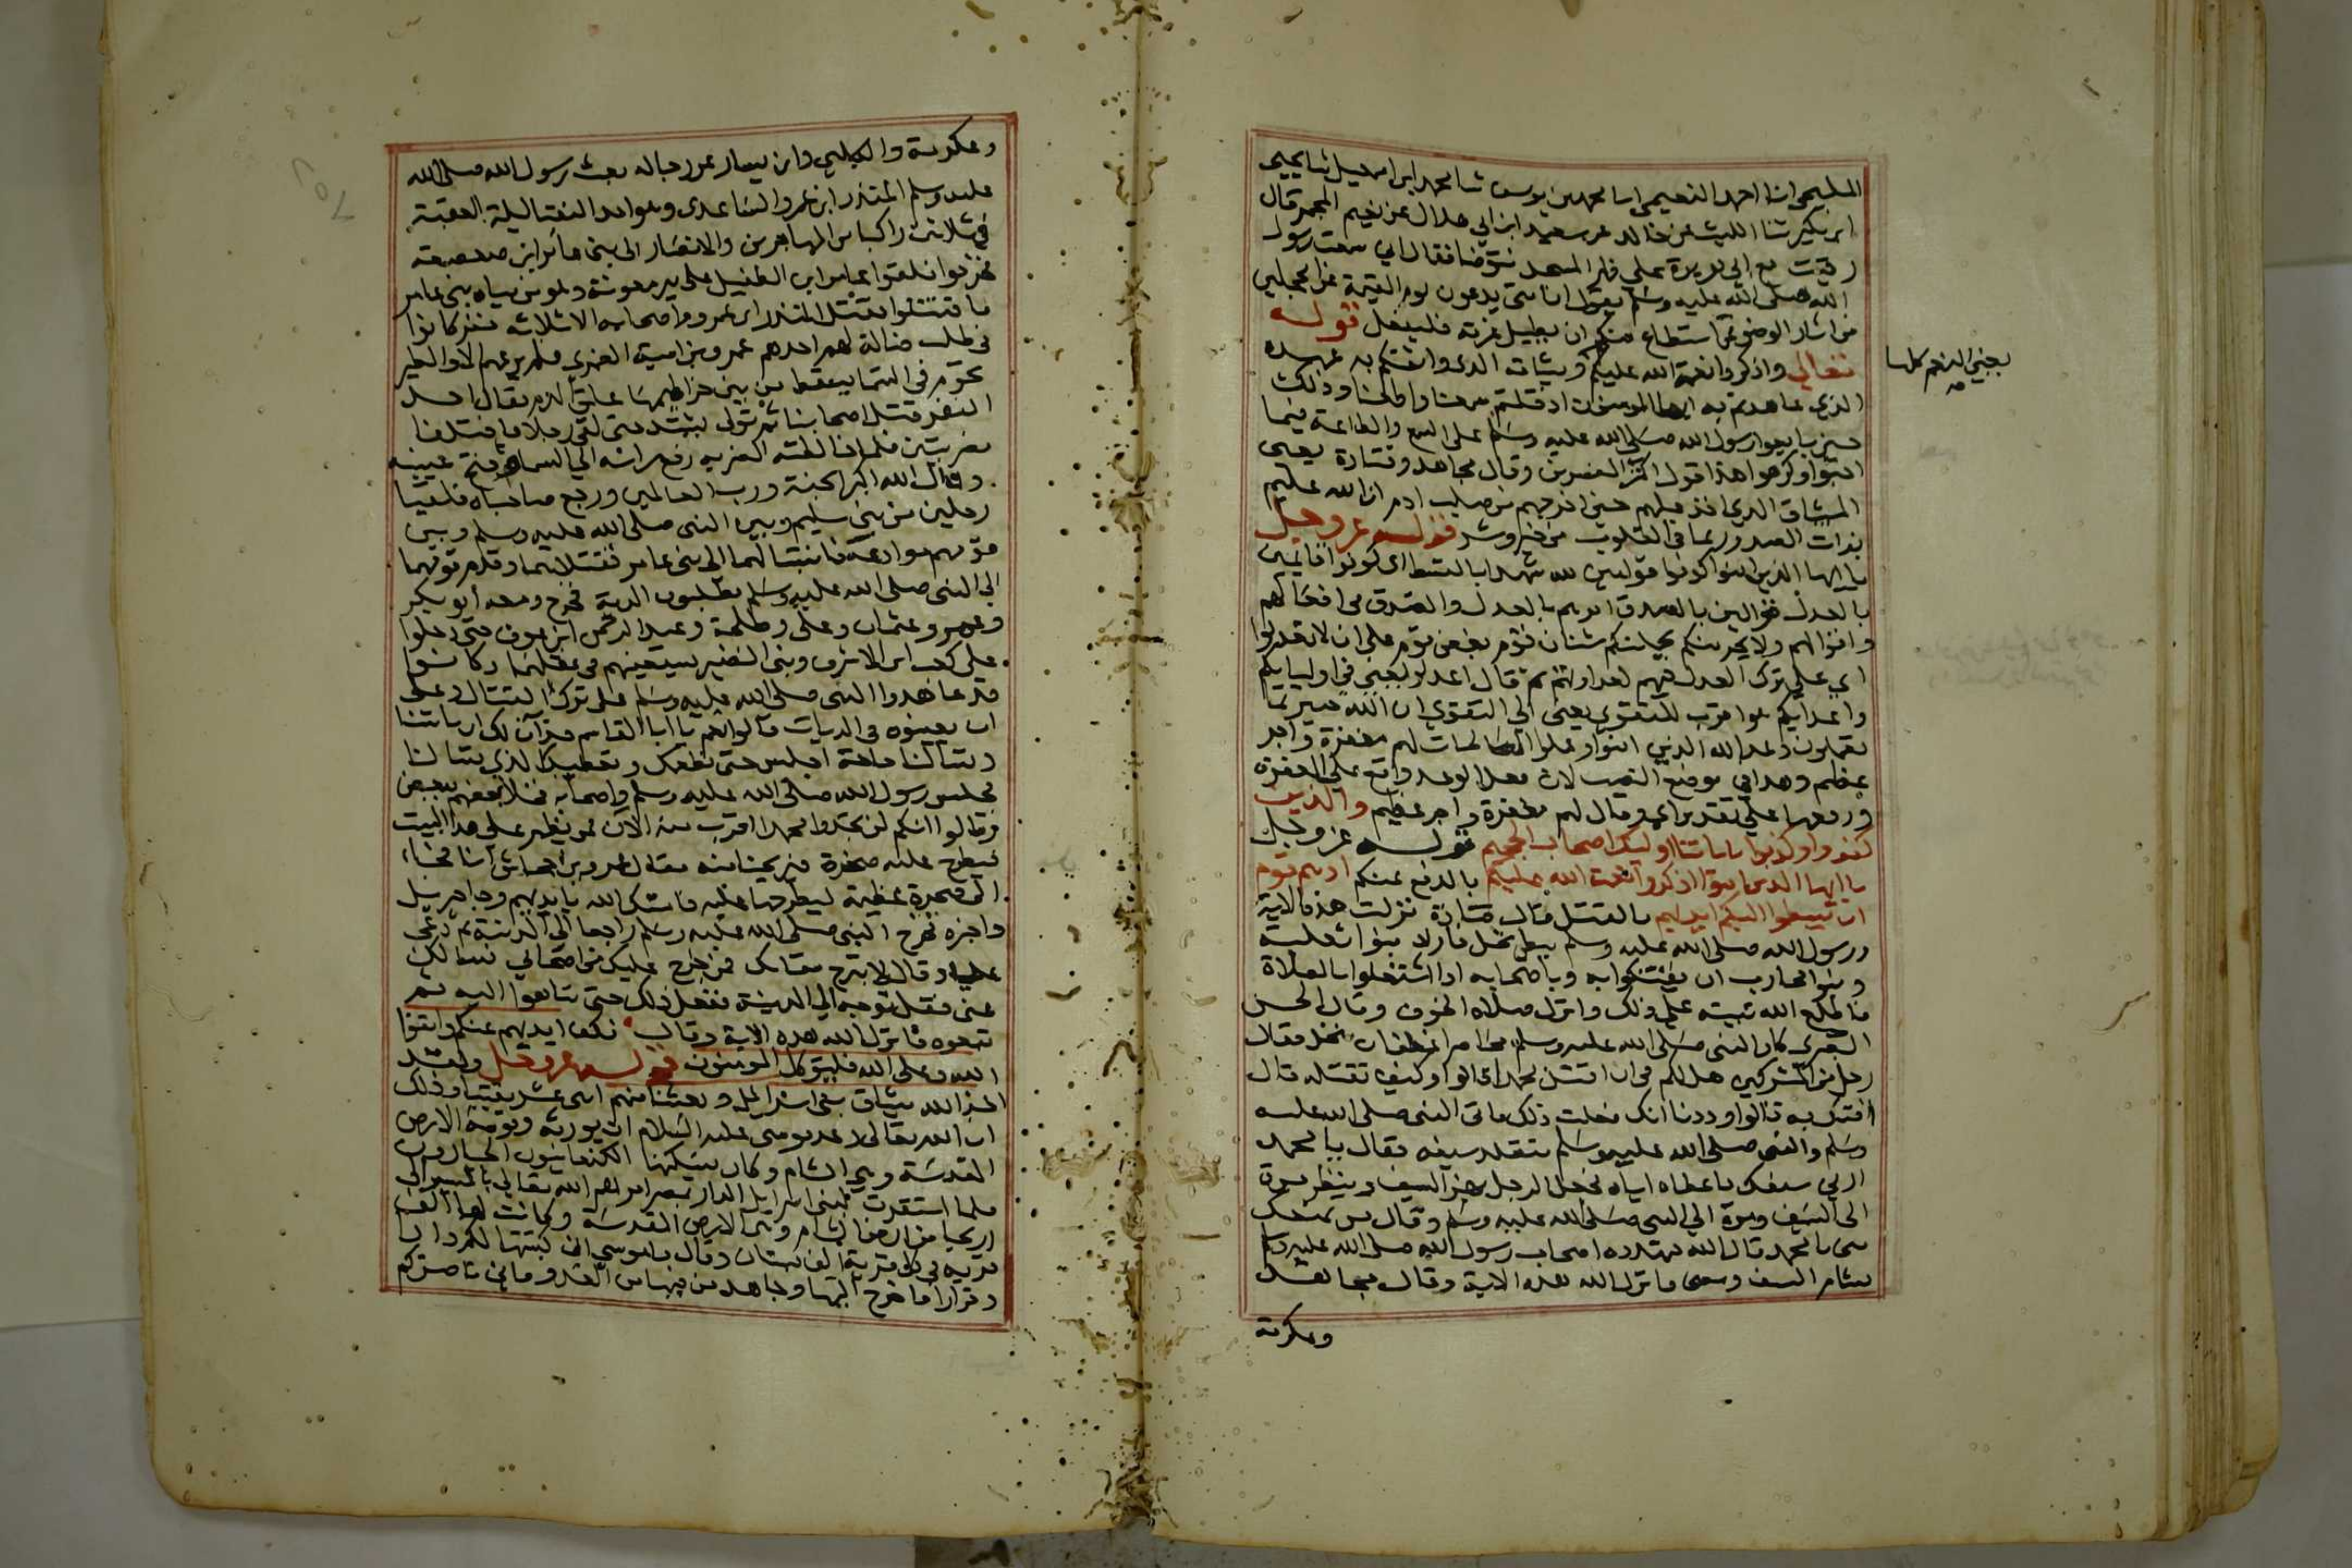 المليحي انا احمد النعيمي انا محمد بن يوسف ثنا محمد ابن اسمعيل ثنا يحيى
ابن بكير ثنا الليث عن خالد عن سعيد ابن ابي هلال عن نعيم المجمر قال
رقيت مع ابي هريرة على ظهر المسجد فتوضا فقال اني سمعت رسول
الله صلى الله عليه وسلم يقول ان امتي يدعون يوم القيمة غرا محجلين
من اثار الوضوء فمن استطاع منكم ان يطيل غرته فليفعل قوله
تعالى واذكروا نعمة الله عليكم وميثاقه الذي واثقكم به عهده
يعني النعم كلها
صه
الذي عاهدتم به ايها المومنون اذ قلتم سمعنا واطعنا وذلك
حين بايعوا رسول الله صلى الله عليه وسلم على السمع والطاعة فيما
احبوا وكرهوا هذا قول اكثر المفسرين وقال مجاهد وقتادة يعني
الميثاق الذي اخذ عليهم حين اخرجهم من صلب ادم ان الله عليم
بذات الصدور بما في القلوب من خير وشر قوله عز وجل
يا ايها الذين امنوا كونوا قوامين لله شهدا بالقسط اي كونوا قايمين
بالعدل قوالين بالصدق امرهم بالعدل والصدق في افعالهم
واقوالهم ولا يجرمنكم يحملنكم شنان قوم بغض قوم على ان لا تعدلوا
اي على ترك العدل فيهم لعداوتهم ثم قال اعدلوا يعني في اوليايكم
واعدايكم هو اقرب للتقوى يعني الى التقوى ان الله خبير بما
تعملون وعد الله الذين امنوا وعملوا الصالحات لهم مغفرة واجر
عظيم وهذا في موضع النصب لان فعل الوعد واقع على المغفرة
ورفعها على تقدير اي وقال لهم مغفرة واجر عظيم والذين
كفروا وكذبوا باياتنا اوليك اصحاب الجحيم قوله عز وجل
يا ايها الذين امنوا اذكروا نعمت الله عليكم بالدفع عنكم اذ هم قوم
ان يبسطوا اليكم ايديهم بالقتل قال قتادة نزلت هذه الاية
ورسول الله صلى الله عليه وسلم ببطن نخل فاراد بنوا ثعلبة
وبنوا محارب ان يفتكوا به وباصحابه اذا اشتغلوا بالصلاة
فاطلع الله نبيه على ذلك وانزل صلاة الخوف وقال الحسن
البصري كان النبي صلى الله عليه وسلم محاصرا غطفان بنخل فقال
رجل من المشركين هل لكم في ان اقتل محمدا قالوا وكيف تقتله قال
افتك به قالوا وددنا انك فعلت ذلك فاتى النبي صلى الله عليه
وسلم والنبي صلى الله عليه وسلم متقلد سيفه فقال يا محمد
ارني سيفك فاعطاه اياه فجعل الرجل يهز السيف وينظر مرة
الى السيف ومرة الى النبي صلى الله عليه وسلم وقال من يمنعك
مني يا محمد قال الله فهدده اصحاب رسول الله صلى الله عليه وسلم
فشام السيف ومضى فانزل الله هذه الاية وقال مجاهد
وعكرمة
وعكرمة والكلبي وابن يسار عن رجاله بعث رسول الله صلى الله
عليه وسلم المنذر ابن عمرو الساعدي وهو احد النقبا ليلة العقبة
في ثلاثين راكبا من المهاجرين والانصار الى بني عامر ابن صعصعة
فخرجوا فلقوا عامر ابن الطفيل على بير معونة وهو من مياه بني عامر
فاقتتلوا فقتل المنذر ابن عمرو واصحابه الا ثلاثة نفر كانوا
في طلب ضالة لهم احدهم عمرو بن امية الضمري فلم يرعهم الا والطير
تحوم في السما يسقط من بين خراطيمها علق الدم فقال احد
النفر قتل اصحابنا ثم تولى يشتد حتى لقي رجلا فاختلفا
ضربتين فلما خالطته الضربة رفع راسه الى السماء وفتح عينيه
وقال الله اكبر الجنة ورب العالمين ورجع صاحباه فلقيا
رجلين من بني سليم وبين النبي صلى الله عليه وسلم وبين
قومهم موادعة فانتسبا لهما الى بني عامر فقتلاهما وقدم قومهما
الى النبي صلى الله عليه وسلم يطلبون الدية فخرج ومعه ابو بكر
وعمر وعثمان وعلي وطلحة وعبد الرحمن ابن عوف حتى دخلوا
على كعب ابن الاشرف وبني النضير يستعينهم في عقلهما وكانوا
قد عاهدوا النبي صلى الله عليه وسلم على ترك القتال وعلى
ان يعينوه في الديات قالوا نعم يا ابا القاسم قد آن لك ان تاتنا
وتسالنا حاجة اجلس حتى نطعمك ونعطيك الذي تسالنا
فجلس رسول الله صلى الله عليه وسلم واصحابه فخلا بعضهم ببعض
وقالوا انكم لن تجدوا محمدا اقرب منه الآن فمن يظهر على هذا البيت
فيطرح عليه صخرة فيريحنا منه فقال عمرو بن جحاش انا فجاء
الى صخرة عظيمة ليطرحها عليه فامسك الله يا يديهم وجا جبريل
واخبره فخرج النبي صلى الله عليه وسلم راجعا الى المدينة ثم دعى
عليا وقال لا تبرح مقامك فمن خرج عليك من اصحابي فسالك
عني فقل توجه الى المدينة ففعل ذلك حتى تناهوا اليه ثم
تبعوه فانزل الله هذه الاية وقال فكف ايديهم عنكم واتقوا
الله وعلى الله فليتوكل المومنون قوله عز وجل ولقد
اخذ الله ميثاق بني اسرائيل وبعثنا منهم اثنى عشر نقيبا وذلك
ان الله تعالى وعد موسى عليه السلام ان يورثه وقومه الارض
المقدسة وهي الشام وكان يسكنها الكنعانيون الجبارون
فلما استقرت لبني اسرايل الدار بمصر امرهم الله تعالى بالمسير الى
اريحيا من ارض الشام وهي الارض المقدسة وكانت لها الف
قرية في كل قرية الف بستان وقال يا موسى اني كتبتها لكم دارا
وقرارا فاخرج اليها وجاهد من فيها من العدو فاني ناصركم